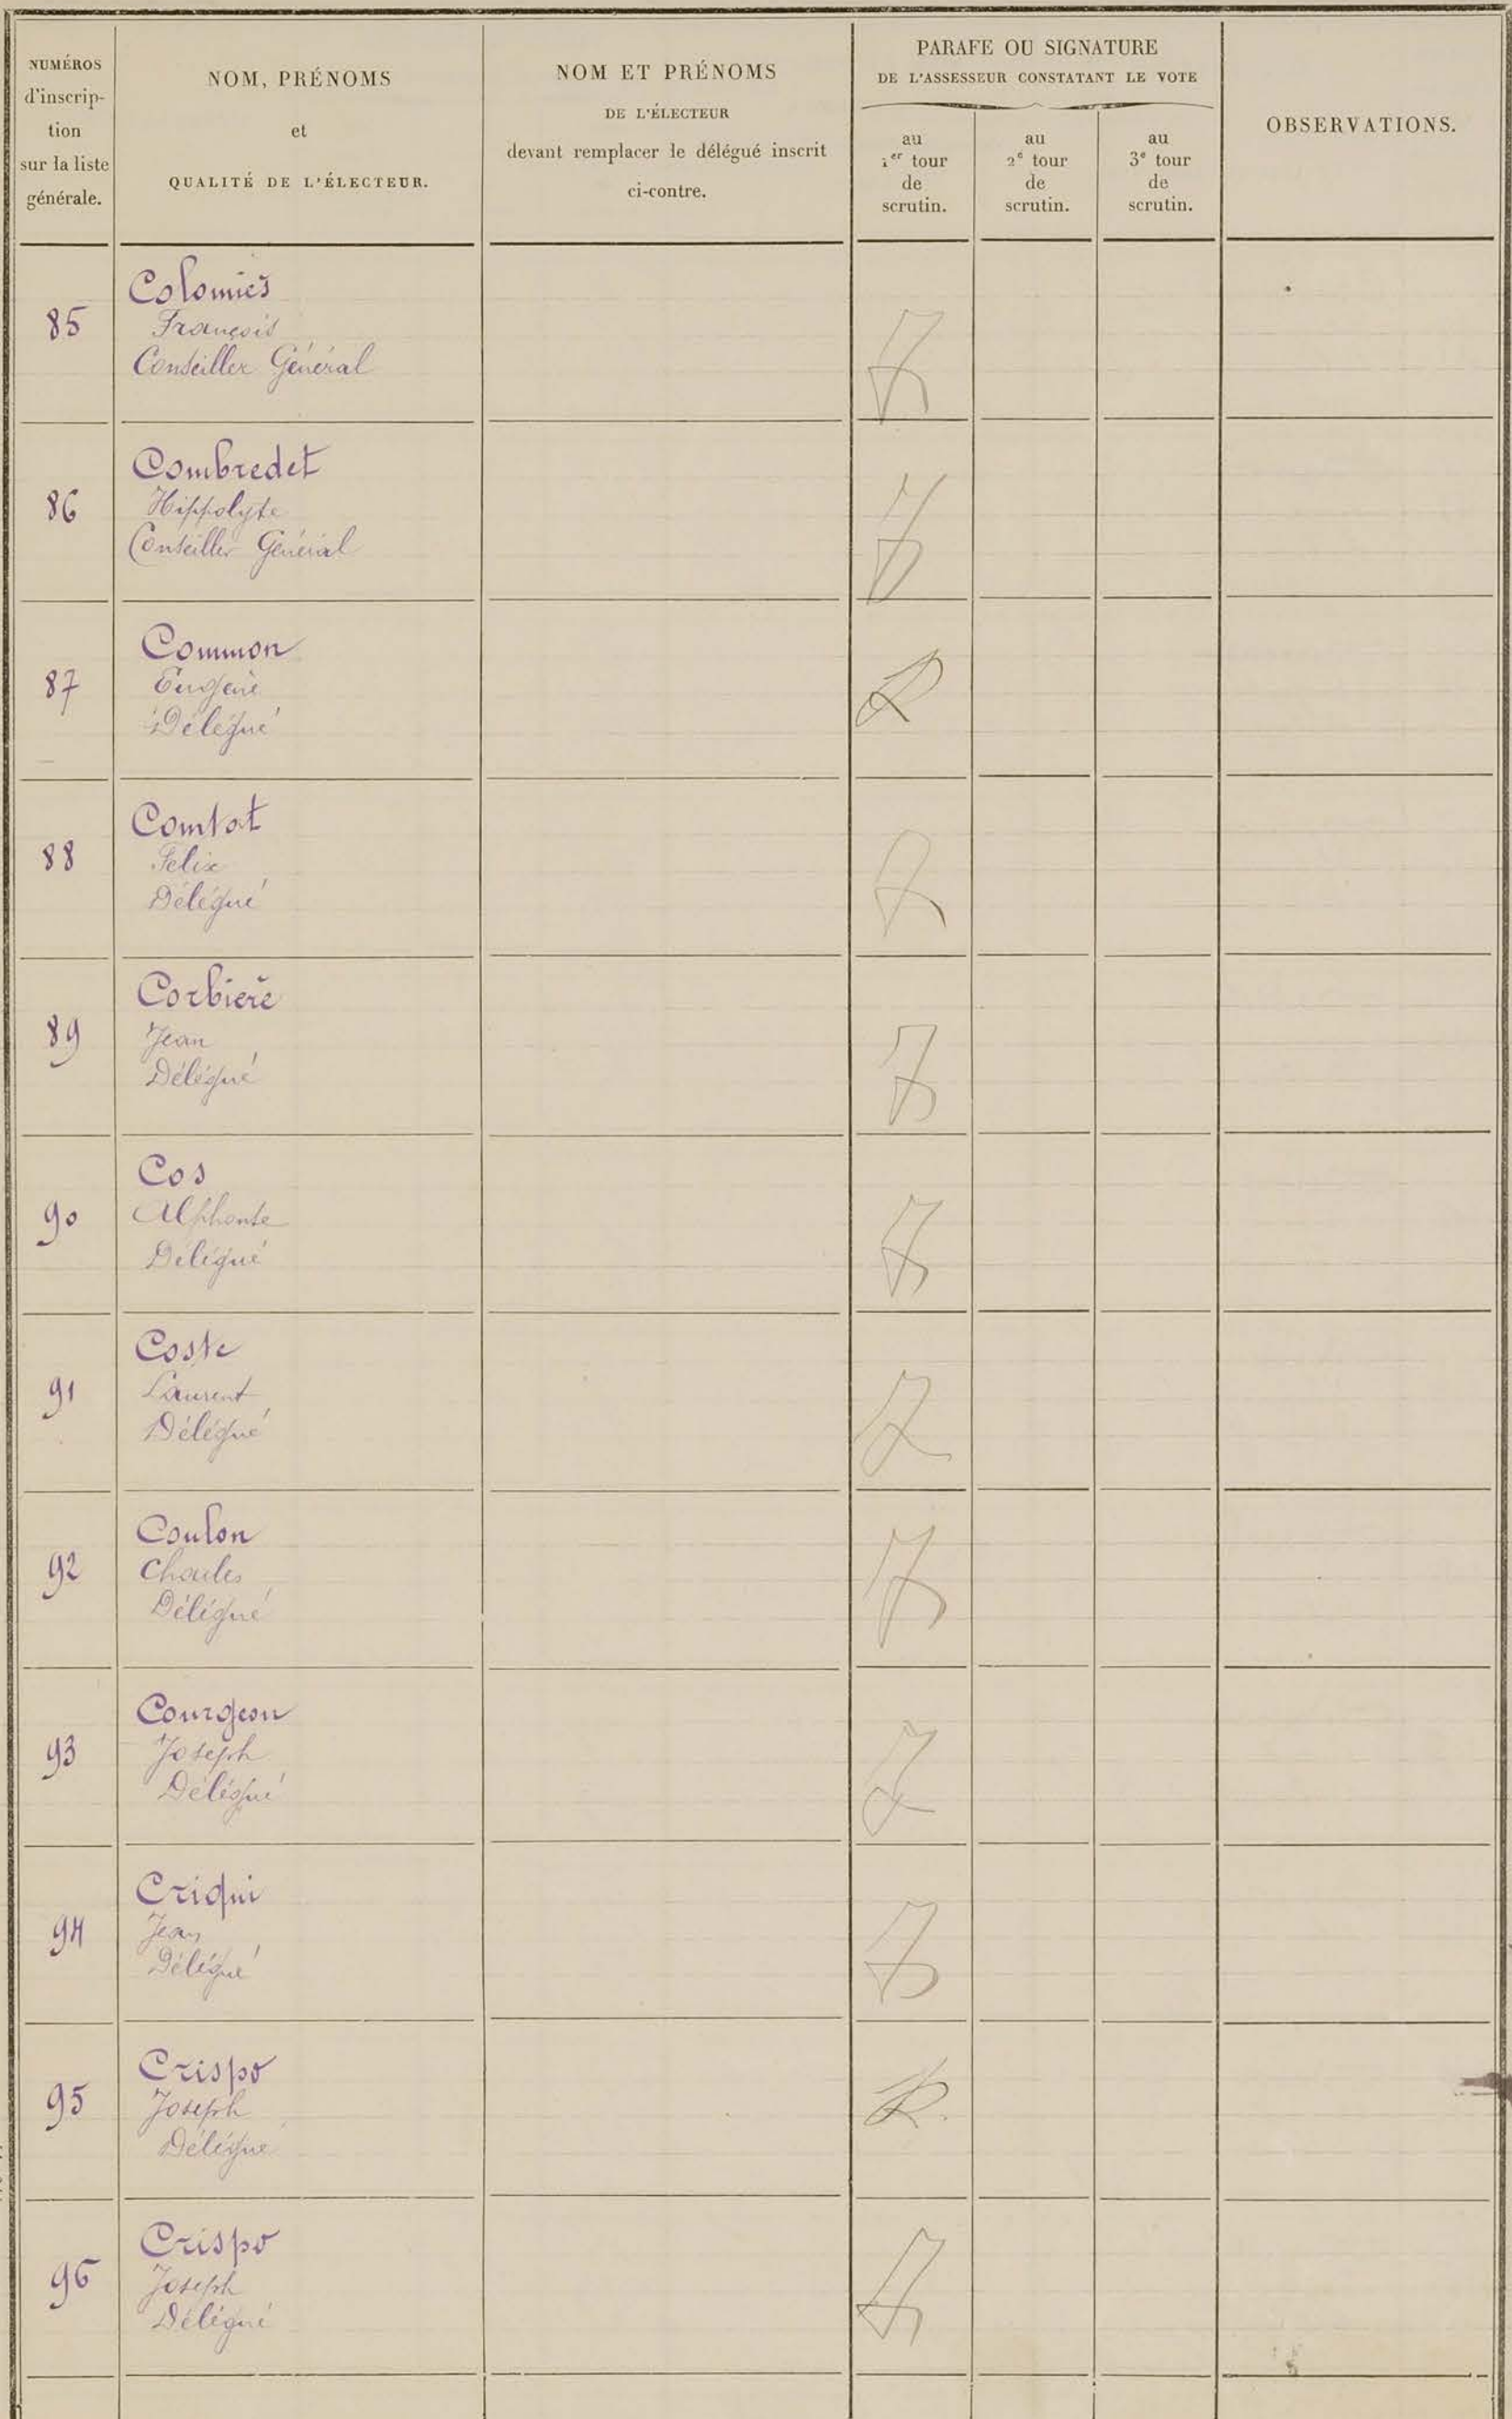 NUMÉROS
d'inscrip-
tion
sur la liste
générale.
NOM, PRÉNOMS
et
QUALITÉ DE L'ÉLECTEUR.
NOM ET PRÉNOMS
DE L'ÉLECTEUR
devant remplacer le délégué inscrit
ci-contre.
PARAFE OU SIGNATURE
DE L'ASSESSEUR CONSTATANT LE VOTE
au
1er tour
de
scrutin.
au
2e tour
de
scrutin.
au
3e tour
de
scrutin.
OBSERVATIONS.
85
Colomiès
François
Conseiller Général
86
Combredet
Hippolyte
Conseiller Général
87
Common
Eugène
Délégué
88
Comtat
Felix
Délégué
89
Corbière
Jean
Délégué
90
Cos
Alphonse
Délégué
91
Coste
Laurent
Délégué
92
Coulon
Charles
Délégué
93
Courgeon
Joseph
Délégué
94
Criqui
Jean
Délégué
95
Crispo
Joseph
Délégué
96
Crispo
Joseph
Délégué